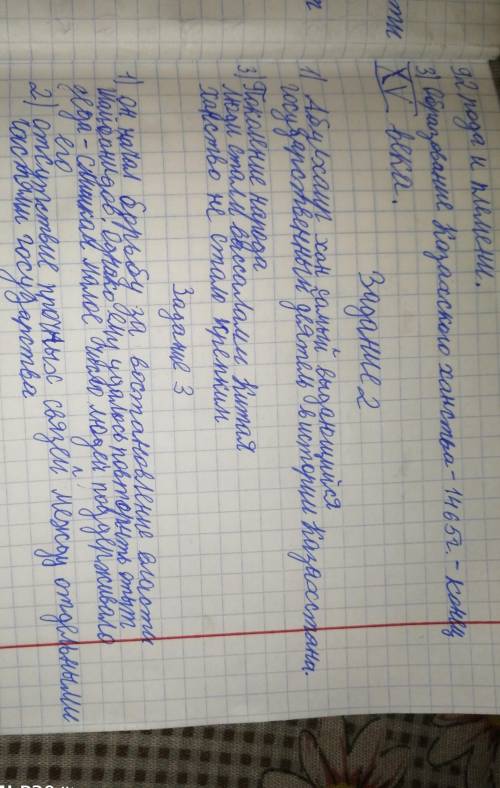 92 рода и племени.
3) Образование Казахского ханства - 1465г. - конец
XV века.
Задание 2
1) Абулхаир хан самый выдающийся
государственный деятель в истории Казахстана.
3) Поколение народа
люди стали вассалами Китая
Ханство не стало крепким
Задание 3
1) он начал борьбу за востановление власти
Шайбанидов. Однако ему удалось повторить опыт
деда - слишком малое число людей поддерживало
его
2) отсутствие прочных связей между отдельными
частями государства